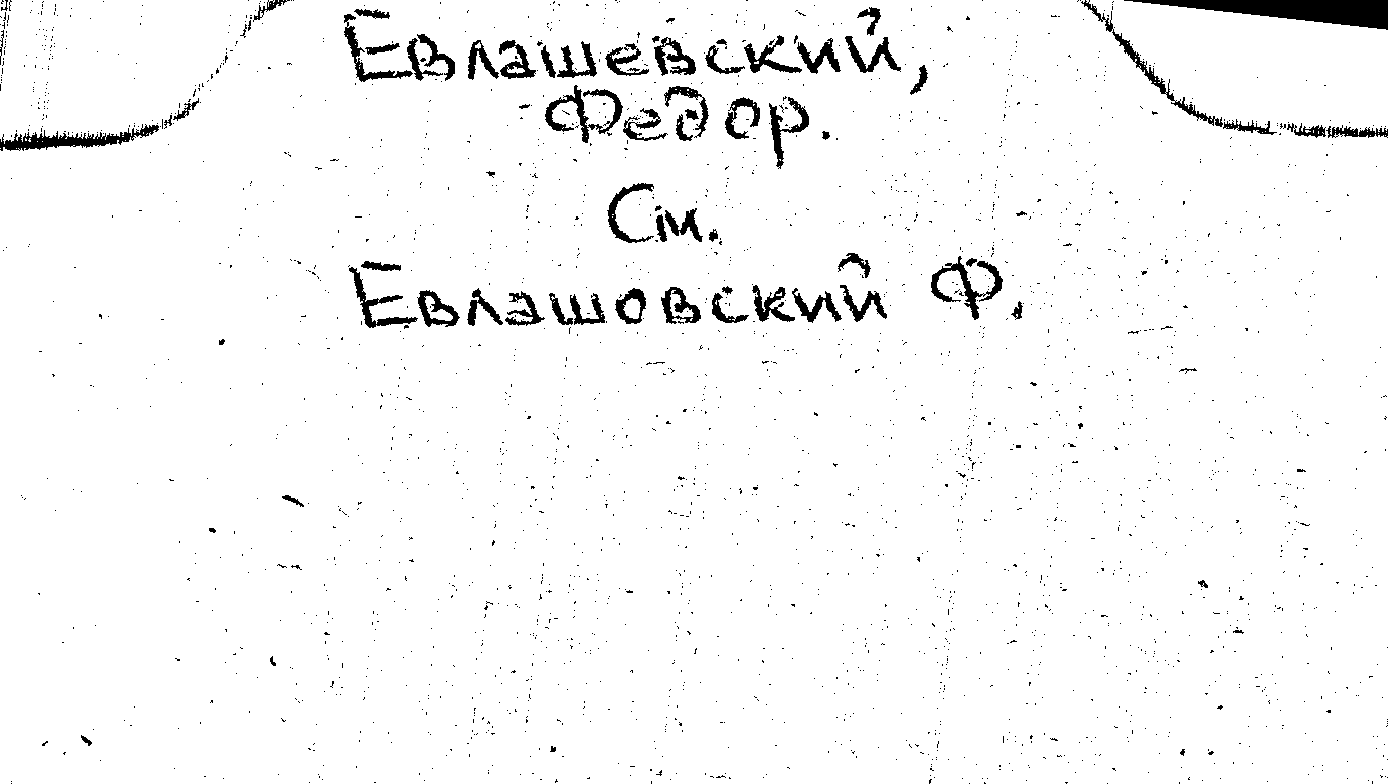 Евлашевский,
Федор.
См.
Евлашовский Ф.